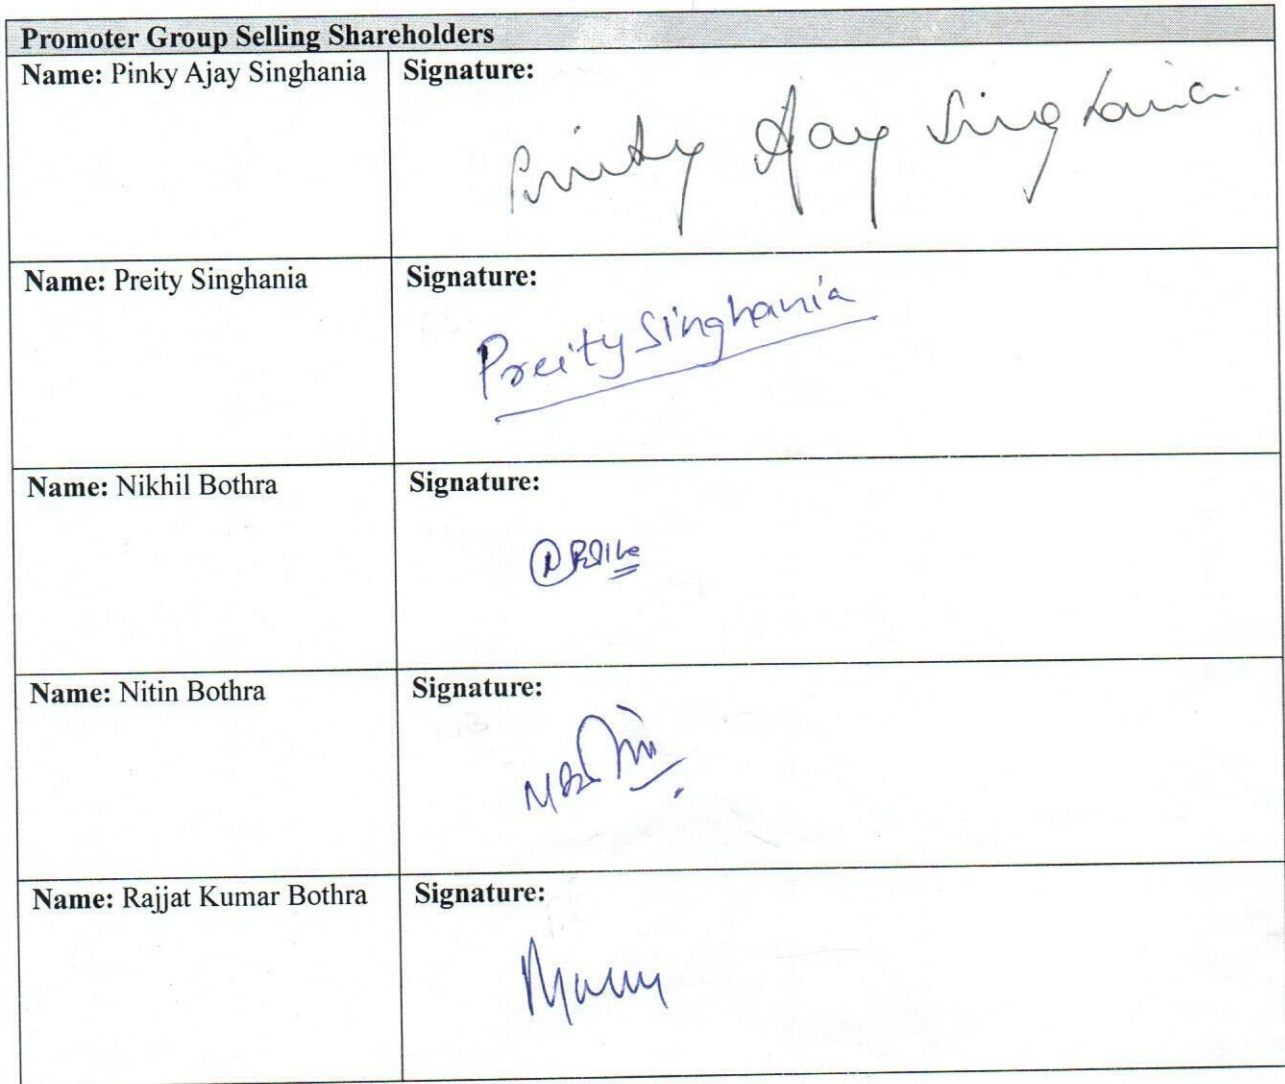 Promoter Group Selling Shareholders
Name: Pinky Ajay Singhania Signature:
Ajay Singhania
Name: Preity Singhania Signature:
Preity Singhania
Name: Nikhil Bothra Signature:
Name: Nitin Bothra Signature:
Name: Rajjat Kumar Bothra Signature: